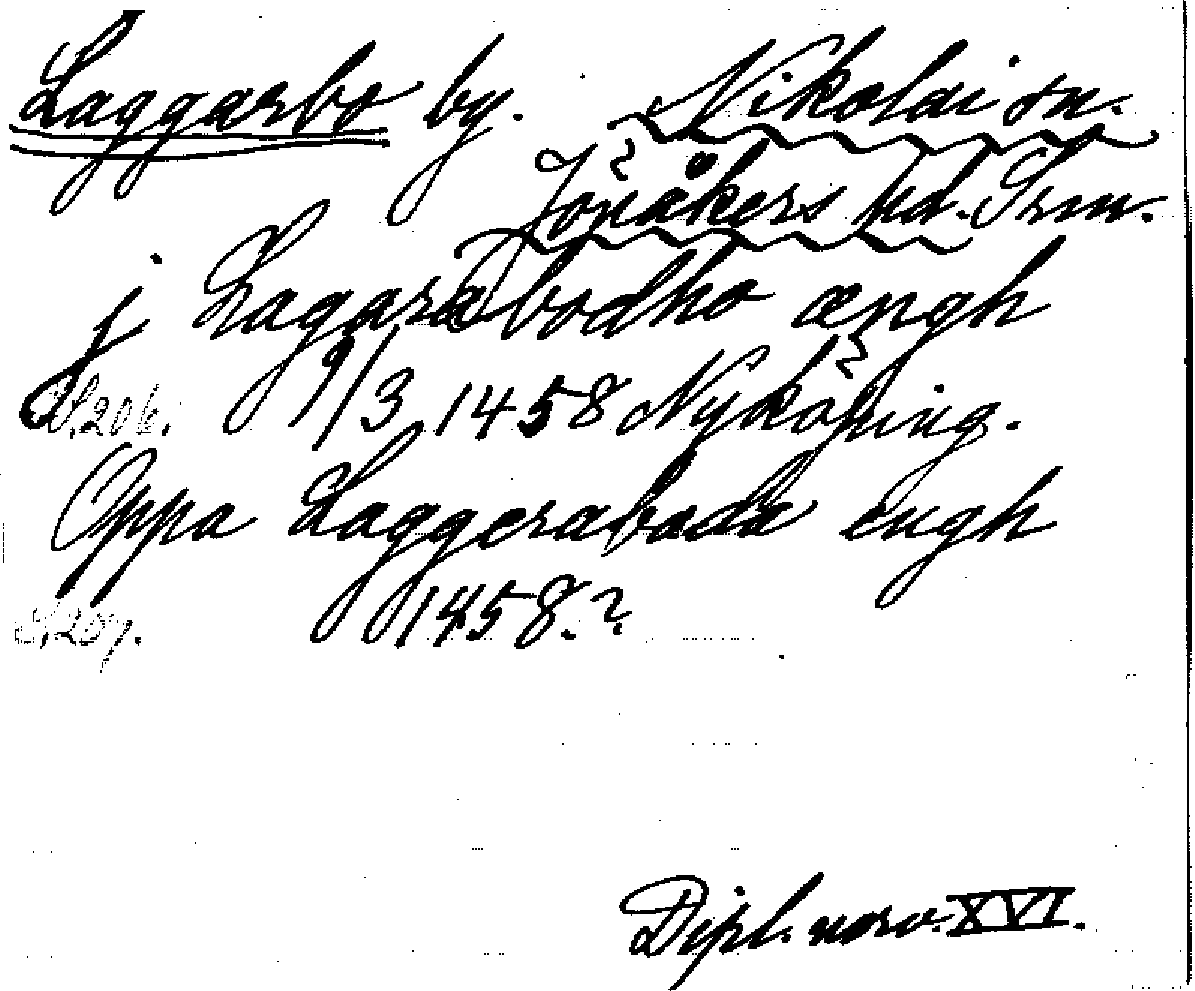 Laggarbo by. Nikolai sn.
Jönåkers hd. Srm.
j Lagarabodho ængh
S. 206. 9/3 1458 Nyköping.
Oppa Laggerabada engh
S. 207. 1458.?
Dipl. norv. XVI.